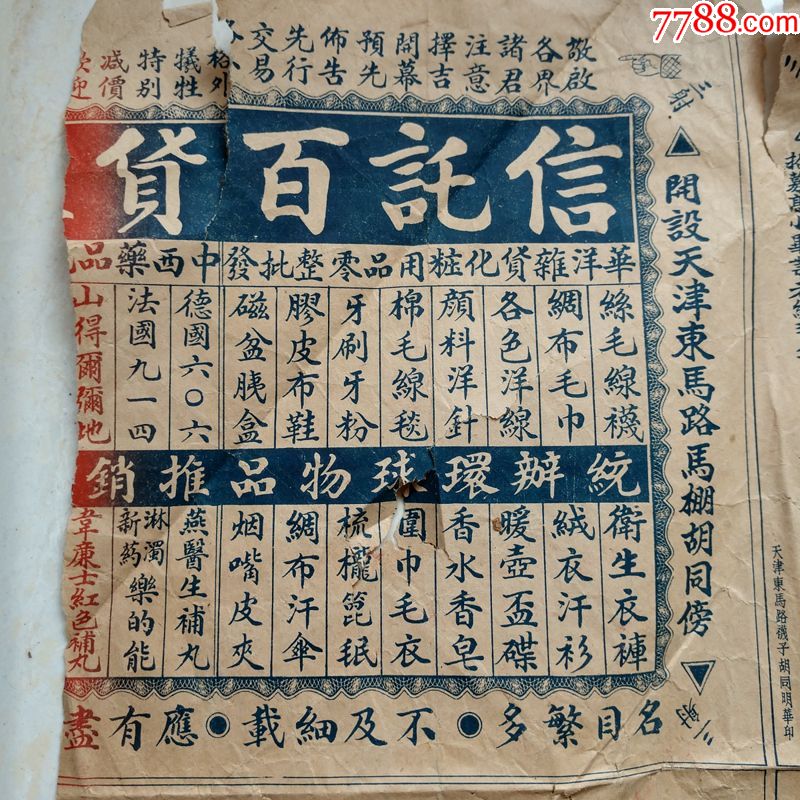 7788.com
敬啟
各界
諸君
注意
擇吉
開幕
預先
佈告
先行
交易
格外
犧牲
特別
減價
歡迎
信託百貨
華洋雜貨化粧用品零整批發
中西藥品
絲毛線襪
綢布毛巾
各色洋線
顏料洋針
棉毛線毯
牙刷牙粉
膠皮布鞋
磁盆胰盒
德國六〇六
法國九一四
山得爾彌地
統辦環球物品推銷
衛生衣褲
絨衣汗衫
暖壺盃碟
香水香皂
圍巾毛衣
梳櫳篦珉
綢布汗傘
烟嘴皮夾
燕醫生補丸
淋濁新葯樂的能
韋廉士紅色補丸
名目繁多●不及細載●應有盡
▲開設天津東馬路馬棚胡同傍▲
天津東馬路襪子胡同明華印